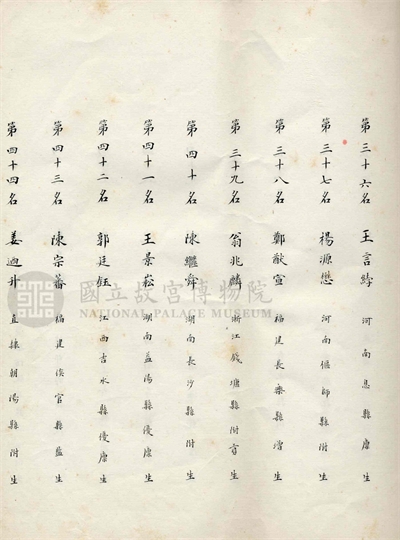 第三十六名 王言綍 河南息縣廩生
第三十七名 楊源懋 河南偃師縣附生
第三十八名 鄭猷宣 福建長樂縣增生
第三十九名 翁兆麟 浙江錢塘縣附貢生
第四十名 陳繼舜 湖南長沙縣附生
第四十一名 王景崧 湖南益陽縣優廩生
第四十二名 郭廷鈺 江西吉水縣優廩生
第四十三名 陳宗蕃 福建侯官縣監生
第四十四名 姜廸升 直隸朝陽縣附生
國立故宮博物院
NATIONAL PALACE MUSEUM